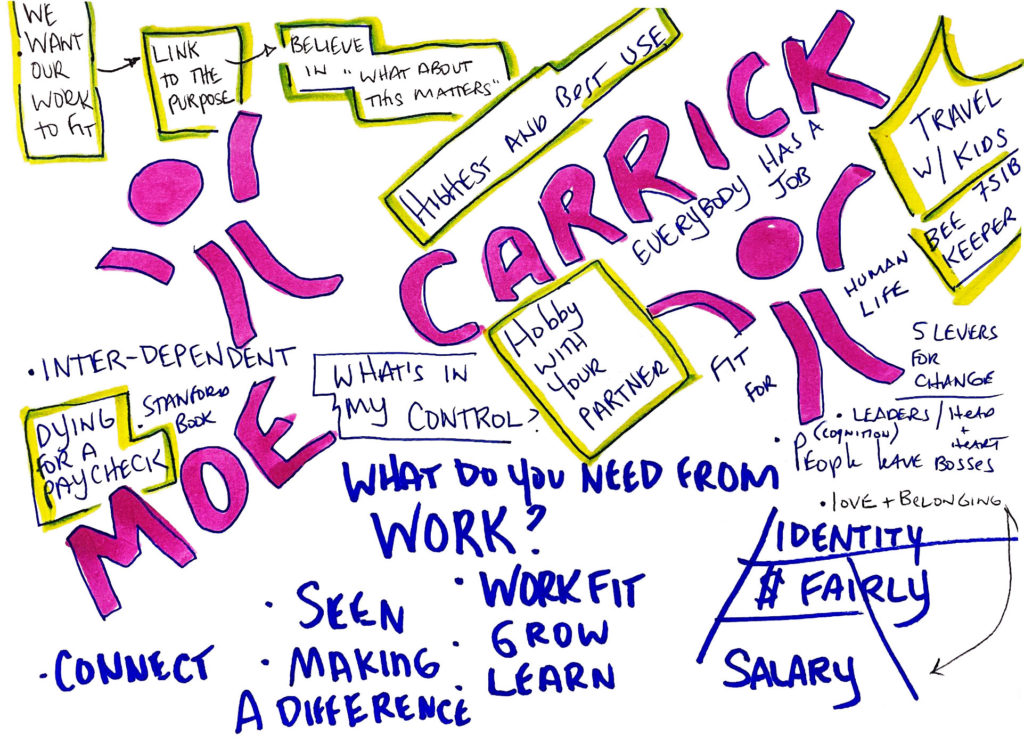 WE
WANT
OUR
WORK
TO FIT
LINK
TO THE
PURPOSE
BELIEVE
IN "WHAT ABOUT
THIS MATTERS"
HIGHEST AND BEST USE
CARRICK
EVERYBODY HAS A
JOB
TRAVEL
W/ KIDS
BEE 751B
KEEPER
HUMAN
LIFE
• INTER-DEPENDENT
DYING
FOR A
PAYCHECK
• STANFORD
BOOK
MOE
WHAT'S IN
MY CONTROL?
Hobby
WITH
YOUR
PARTNER
FIT
FOR
5 LEVERS
FOR
CHANGE
• LEADERS / HEAD
(COGNITION) +
HEART
• PEOPLE LEAVE BOSSES
• LOVE + BELONGING
WHAT DO YOU NEED FROM
WORK?
• CONNECT
• SEEN
• MAKING
A DIFFERENCE
• WORK FIT
• GROW
• LEARN
IDENTITY
$ FAIRLY
SALARY